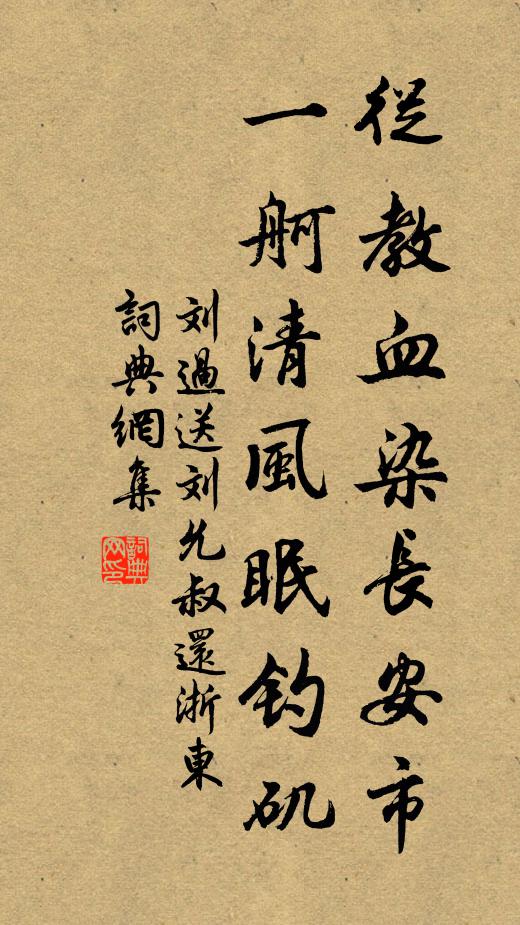 從教血染長安市
一舸清風眠钓矶
刘過送刘允叔還浙東
詞典網集
詞典
网印